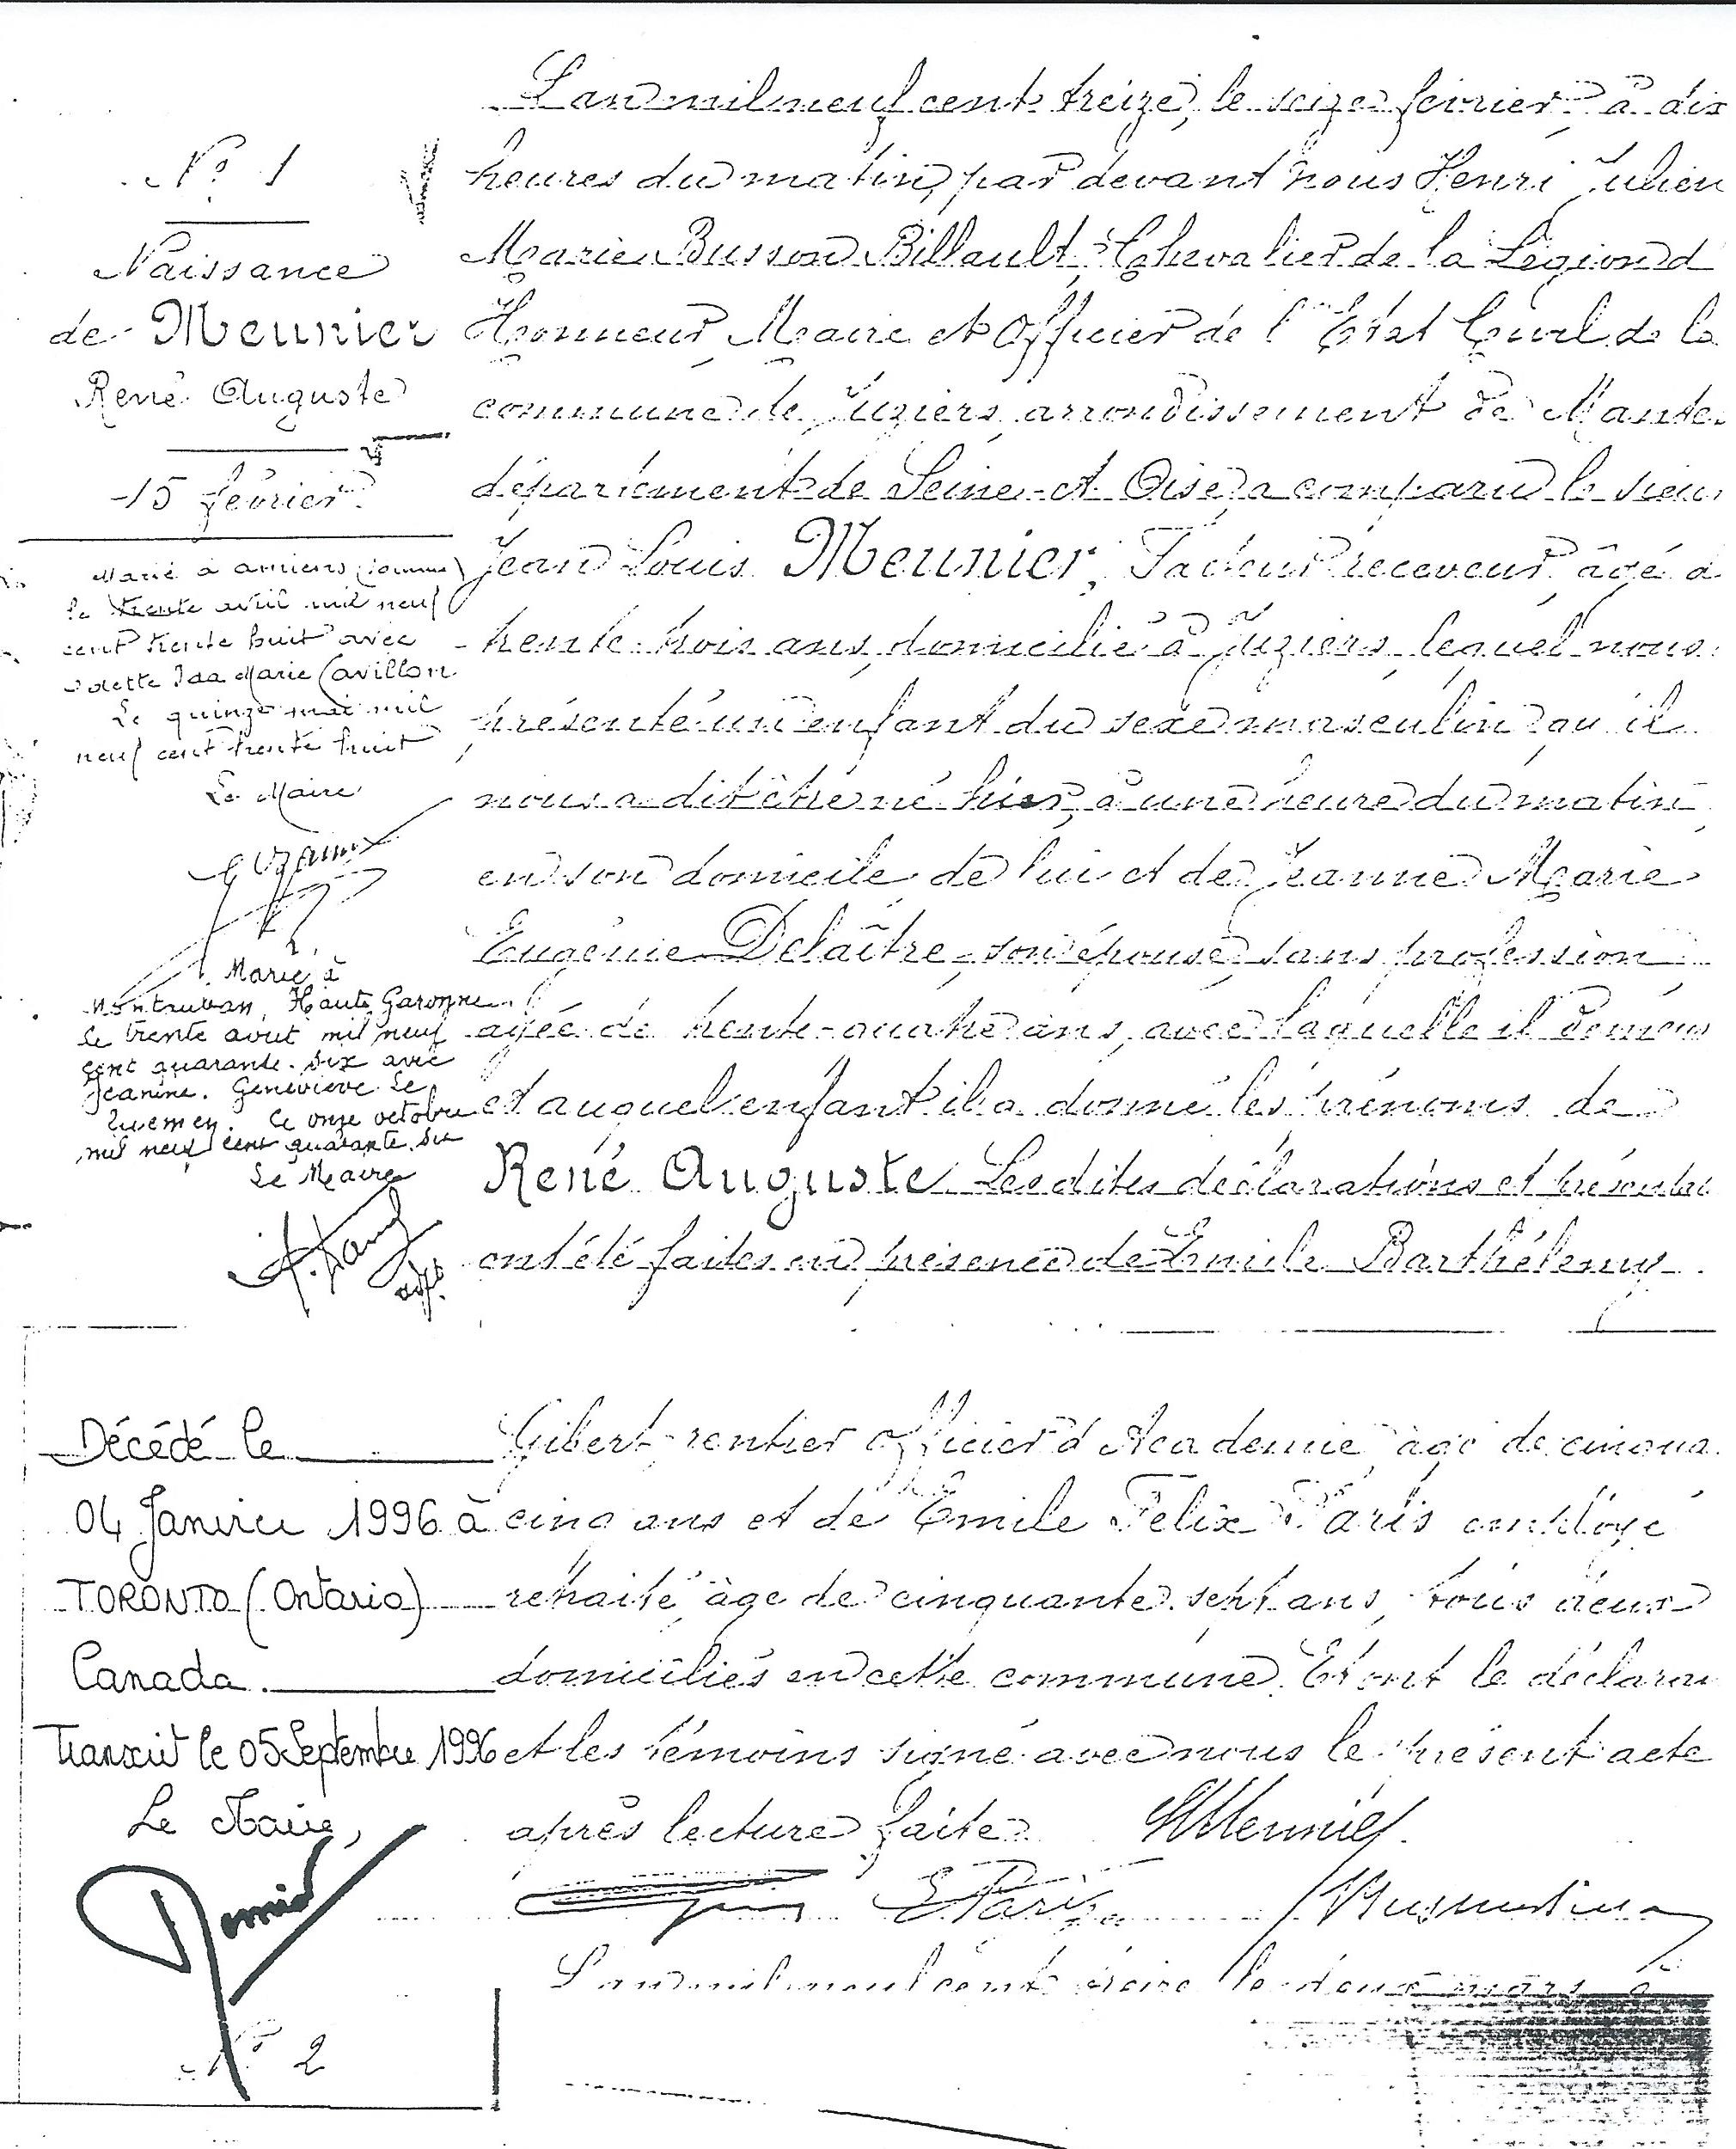 N° 1
Naissance
de Meunier
René Auguste
15 février
Marié à Amiens (Somme)
le trente avril mil neuf
cent trente huit avec
Odette Ida Marie Cavillon
Le quinze mai mil
neuf cent trente huit
Le Maire
Marié à
Montauban, Haute Garonne
le trente août mil neuf
cent quarante-six avec
Jeanine Geneviève Le
Quemen. Le onze octobre
mil neuf cent quarante six
Le Maire
adjt
L'an mil neuf cent treize, le seize février à dix
heures du matin, par devant nous Henri Julien
Marie Busson Billault, Chevalier de la Légion d
Honneur, Maire et Officier de l'Etat Civil de la
commune de Juziers, arrondissement de Mantes
département de Seine-et-Oise, a comparu le sieur
Jean Louis Meunier, Facteur receveur, âgé de
trente-trois ans, domicilié à Juziers, lequel nous
présenté un enfant du sexe masculin qu'il
nous a dit être né hier, à une heure du matin
en son domicile de lui et de Jeanne Marie
Eugénie Delaître, son épouse, sans profession
agée de trente-quatre ans, avec laquelle il demeu
et auquel enfant il a donné les prénoms de
René Auguste Les dites déclarations et présenta
ont été faites en présence de Emile Barthélemy
Décédé le
04 Janvier 1996 à
TORONTO (Ontario)
Canada.
Transcrit le 05 Septembre 1996
Le Maire,
Gibert rentier officier d'Académie âgé de cinqua
cinq ans et de Emile Félix Paris employé
retraité âgé de cinquante-sept ans, tous deux
domiciliés en cette commune. Et ont le déclaran
et les témoins signé avec nous le présent acte
après lecture faite. Meunier
E Paris
L'an mil neuf cent treize le deux mars à
N° 2